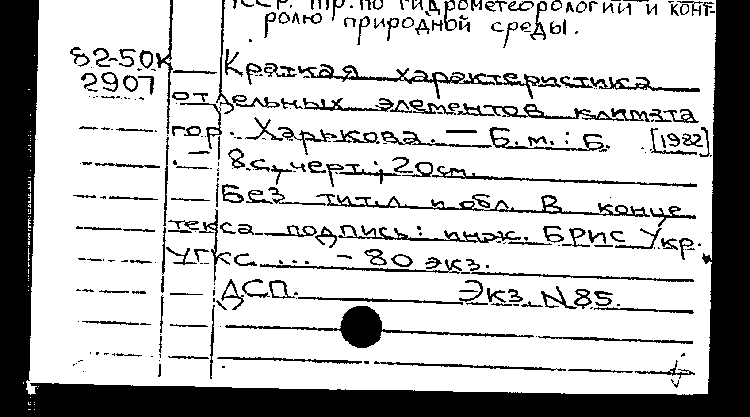 ССР. Тр. по гидрометеорологии и конт-
ролю природной среды.
82-50К
2907
Краткая характеристика
отдельных элементов климата
гор. Харькова. — Б. м. : Б. [1982]
. — 8 с., черт.; 20 см.
Без тит. л. и обл. В конце
текса подпись: инж. БРИС Укр.
УГКС ... - 80 экз.
ДСП. Экз. N 85.